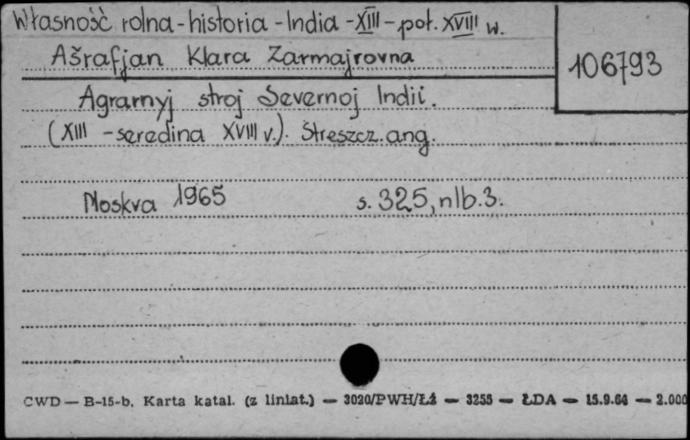 Własność rolna-historia-India-XIII-poł. XVIII w.
Ašrafjan Klara Zarmajrovna
106793
Agrarnyj stroj Severnoj Indii.
(XIII - seredina XVIII v.). Streszcz. ang.
Moskva 1965 s. 325, nlb. 3.
CWD — B-15-b. Karta katal. (z liniat.) — 3020/PWH/Łż — 3255 — ŁDA — 15.9.64 — 2.000